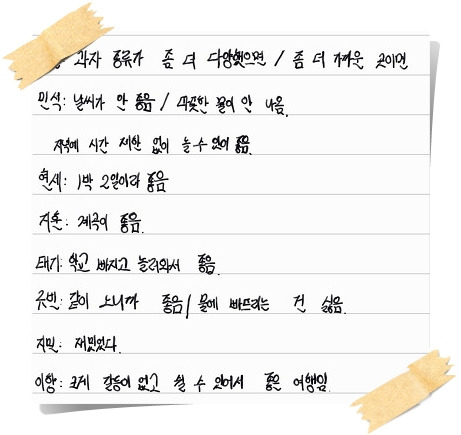 과자 종류가 좀 더 다양했으면 / 좀 더 가까운 곳이면
민석: 날씨가 안 좋음 / 따뜻한 물이 안 나옴.
저녁에 시간 제한 없이 놀 수 있어 좋음.
현세: 1박 2일이라 좋음
지훈: 계곡이 좋음.
태기: 학교 빠지고 놀러와서 좋음.
규빈: 같이 노니까 좋음 / 물에 빠뜨리는 건 싫음.
지민: 재밌었다.
이황: 크게 갈등이 없고 쉴 수 있어서 좋은 여행임.